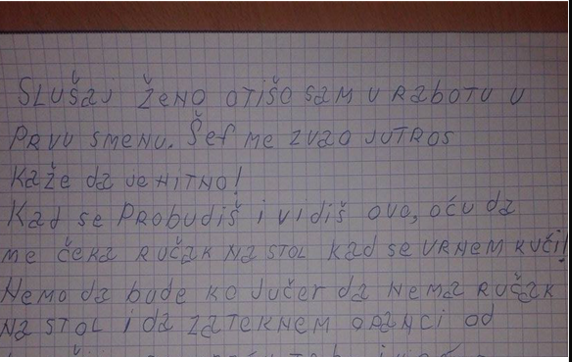 SLUŠaJ ŽENO OTIŠO SaM U RaBOTU U
PRVU SMENU. ŠEF ME ZVaO JUTROS
KaŽE da JE HITNO!
Kad SE PROBUdIŠ i VIdIŠ OVO, OĆU da
ME ČEKA RUČAK Na STOL Kad SE VRNEM KUĆI!
NEMO da bUdE KO JUČER da NEMa RUČaK
Na STOL I da ZaTEKNEM OPANCI Od